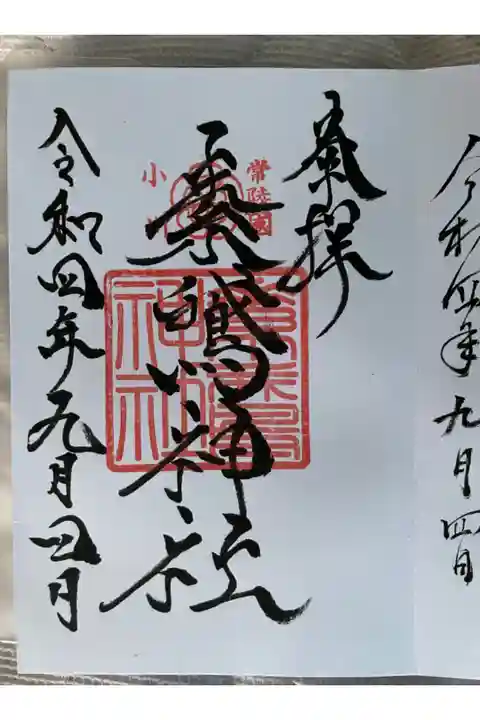 令和四年九月四日
奉拝
常陸國
小川
素鵞神社
素鵞
神社
令和四年九月四日